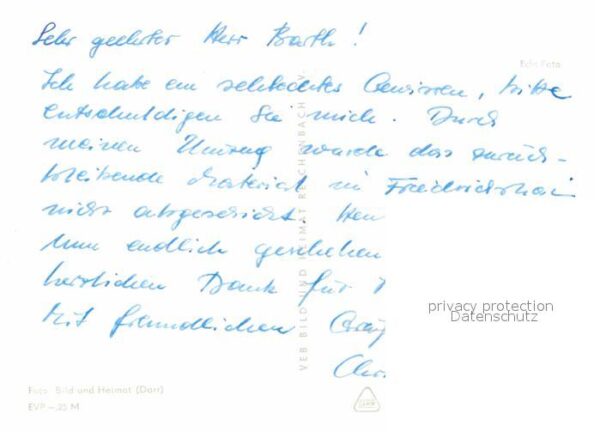 Sehr geehrter Herr Barth!
Echt Foto
Ich habe ein schlechtes Gewissen, bitte
entschuldigen Sie mich. Durch
meinen Umzug wurde das zurück-
bleibende Material in Friedrichshai
nicht abgeschickt.
Nun endlich geschehen
herzlichen Dank für
Mit freundlichen Grüß
Chr.
VEB BILD UND HEIMAT REICHENBACH I. V.
privacy protection
Datenschutz
Foto: Bild und Heimat (Darr)
EVP -,25 M